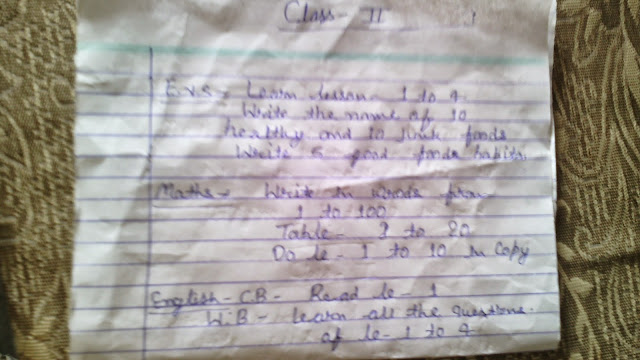 Class - II
E.V.S - Learn lesson - 1 to 4.
Write the name of 10
healthy and 10 junk foods
Write 5 good foods habits.
Maths - Write in words from
1 to 100
Table - 2 to 20
Do le - 1 to 10 in copy
English - C.B - Read le - 1
W.B - Learn all the questions.
of le - 1 to 4